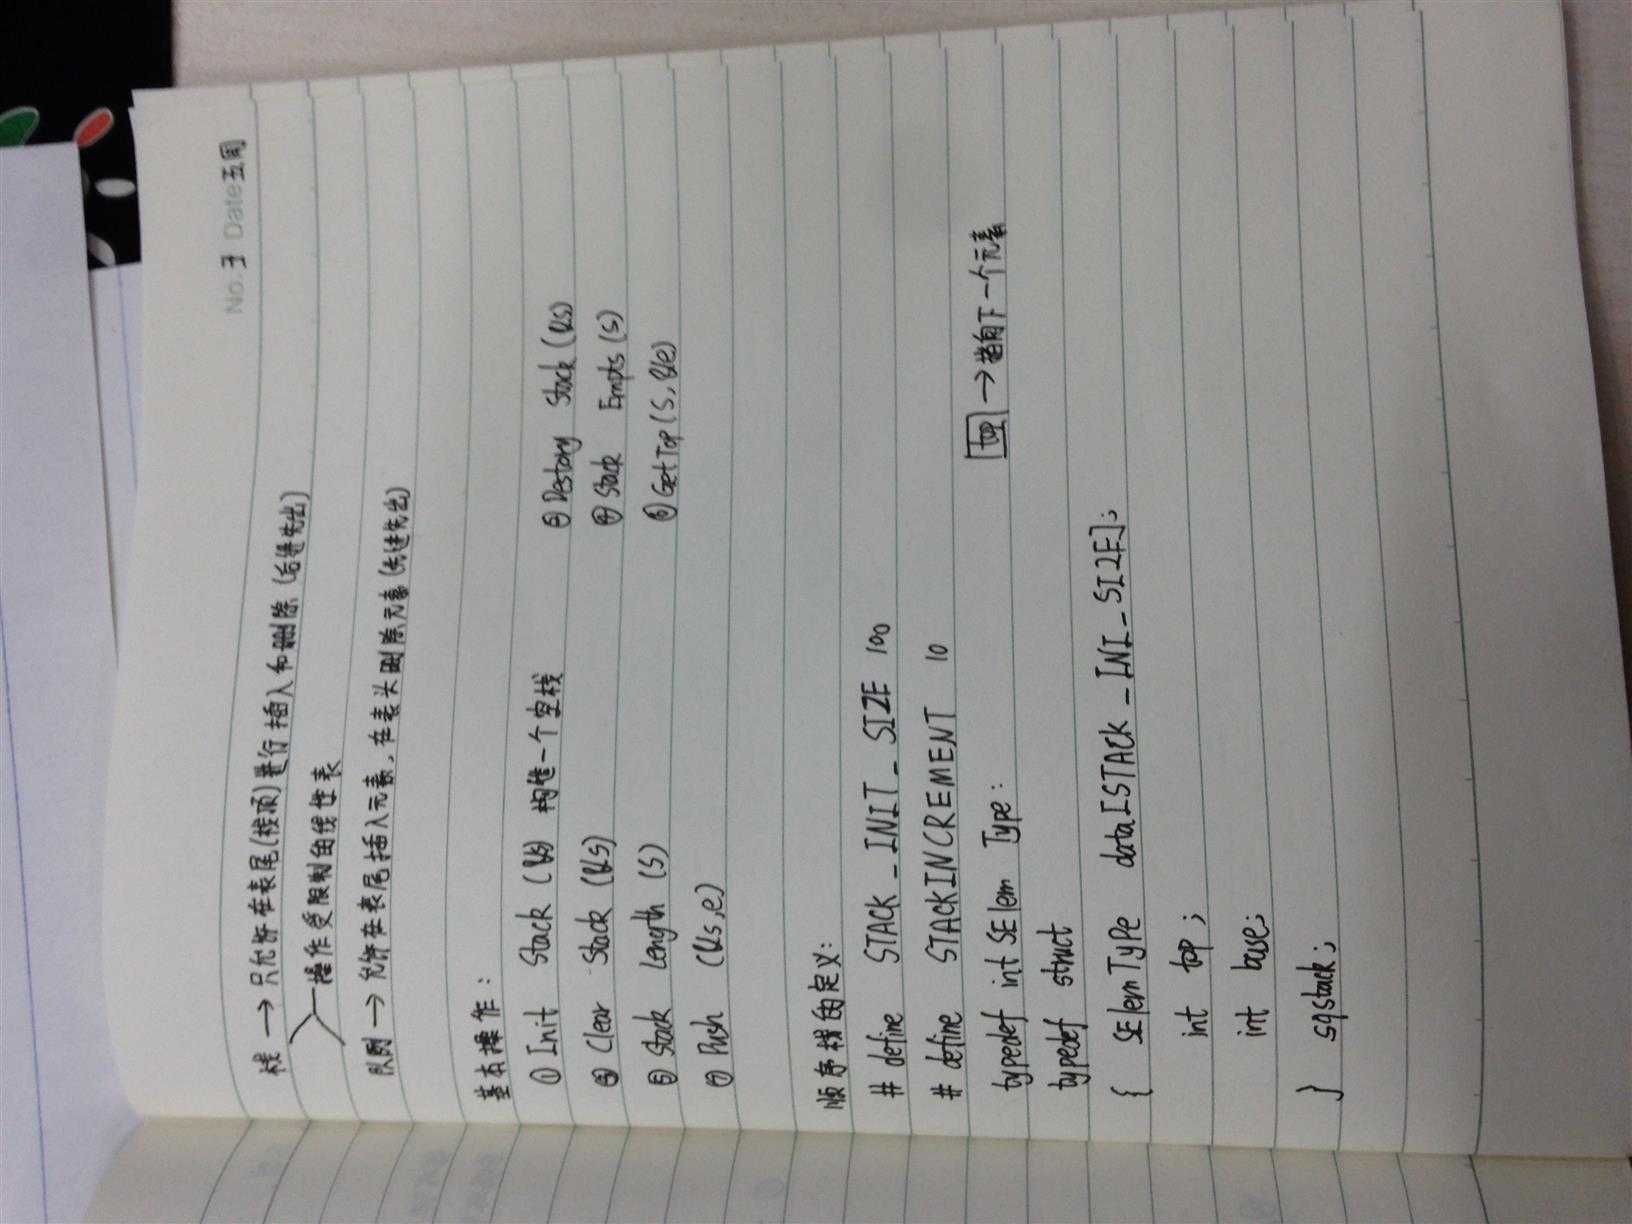 No. 王 Date 五周
栈 → 只允许在表尾(栈顶)进行插入和删除 (后进先出)
操作受限制的线性表
队列 → 允许在表尾插入元素, 在表头删除元素 (先进先出)
基本操作:
① Init Stack (&s) 构造一个空栈 ② Destory Stack (&s)
③ Clear Stack (&s) ④ Stack Empts (s)
⑤ Stack Length (s) ⑥ GetTop (s, &e)
⑦ Push (&s, e)
顺序栈的定义:
# define STACK_INIT_SIZE 100
# define STACKINCREMENT 10
typedef int SElem Type: top → 指向下一个元素
typedef struct
{ SElemType data[STACK_INI_SIZE];
int top;
int base;
} sqstack;